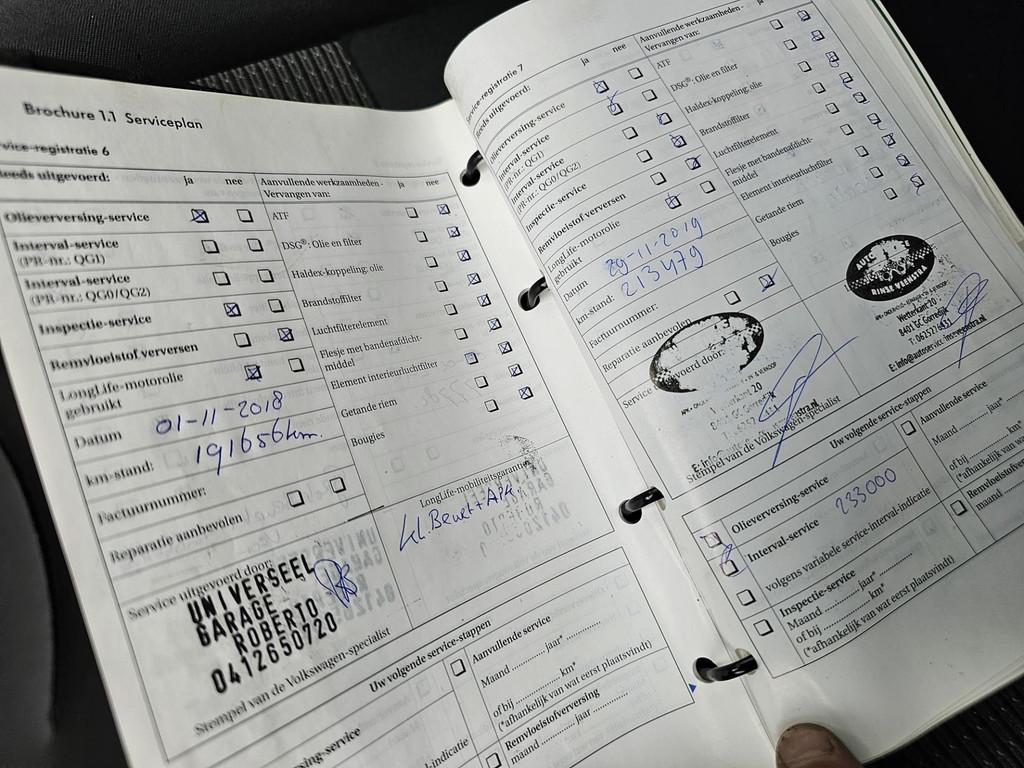 Brochure 1.1 Serviceplan
vice-registratie 6
eeds uitgevoerd:
ja nee
Olieverversing-service
Interval-service
(PR-nr.: QG1)
Interval-service
(PR-nr.: QG0/QG2)
Inspectie-service
Remvloeistof verversen
LongLife-motorolie
gebruikt
Datum 01-11-2018
km-stand: 191656 km.
Factuurnummer:
Reparatie aanbevolen
Service uitgevoerd door:
UNIVERSEEL
GARAGE
ROBERTO
0412650720
Stempel van de Volkswagen-specialist
Aanvullende werkzaamheden -
Vervangen van:
ja nee
ATF
DSG®: Olie en filter
Haldex-koppeling: olie
Brandstoffilter
Luchtfilterelement
Flesje met bandenafdicht-
middel
Element interieurluchtfilter
Getande riem
Bougies
LongLife-mobiliteitsgarantie
Kl. Beurt + APK
Uw volgende service-stappen
ersing-service
kindicatie
Aanvullende service
Maand jaar*
of bij km*
(*afhankelijk van wat eerst plaatsvindt)
Remvloeistofverversing
maand jaar
ervice-registratie 7
eeds uitgevoerd:
ja nee
Olieverversing-service
Interval-service
(PR-nr.: QG1)
Interval-service
(PR-nr.: QG0/QG2)
Inspectie-service
Remvloeistof verversen
LongLife-motorolie
gebruikt
Datum 29-11-2019
km-stand: 213479
Factuurnummer:
Reparatie aanbevolen
Service
voerd door:
Stempel van de Volkswagen-specialist
Aanvullende werkzaamheden -
Vervangen van:
ja
ATF
DSG®: Olie en filter
Haldex-koppeling: olie
Brandstoffilter
Luchtfilterelement
Flesje met bandenafdicht-
middel
Element interieurluchtfilter
Getande riem
Bougies
RINSE VEENSTRA
Wetterkant 20
8401 GC Gorredijk
Uw volgende service-stappen
Olieverversing-service
Interval-service 233000
volgens variabele service-interval-indicatie
Inspectie-service
Maand jaar*
of bij km*
(*afhankelijk van wat eerst plaatsvindt)
Aanvullende service
Maand jaar*
of bij km*
(*afhankelijk van wat
Remvloeistofver
maand